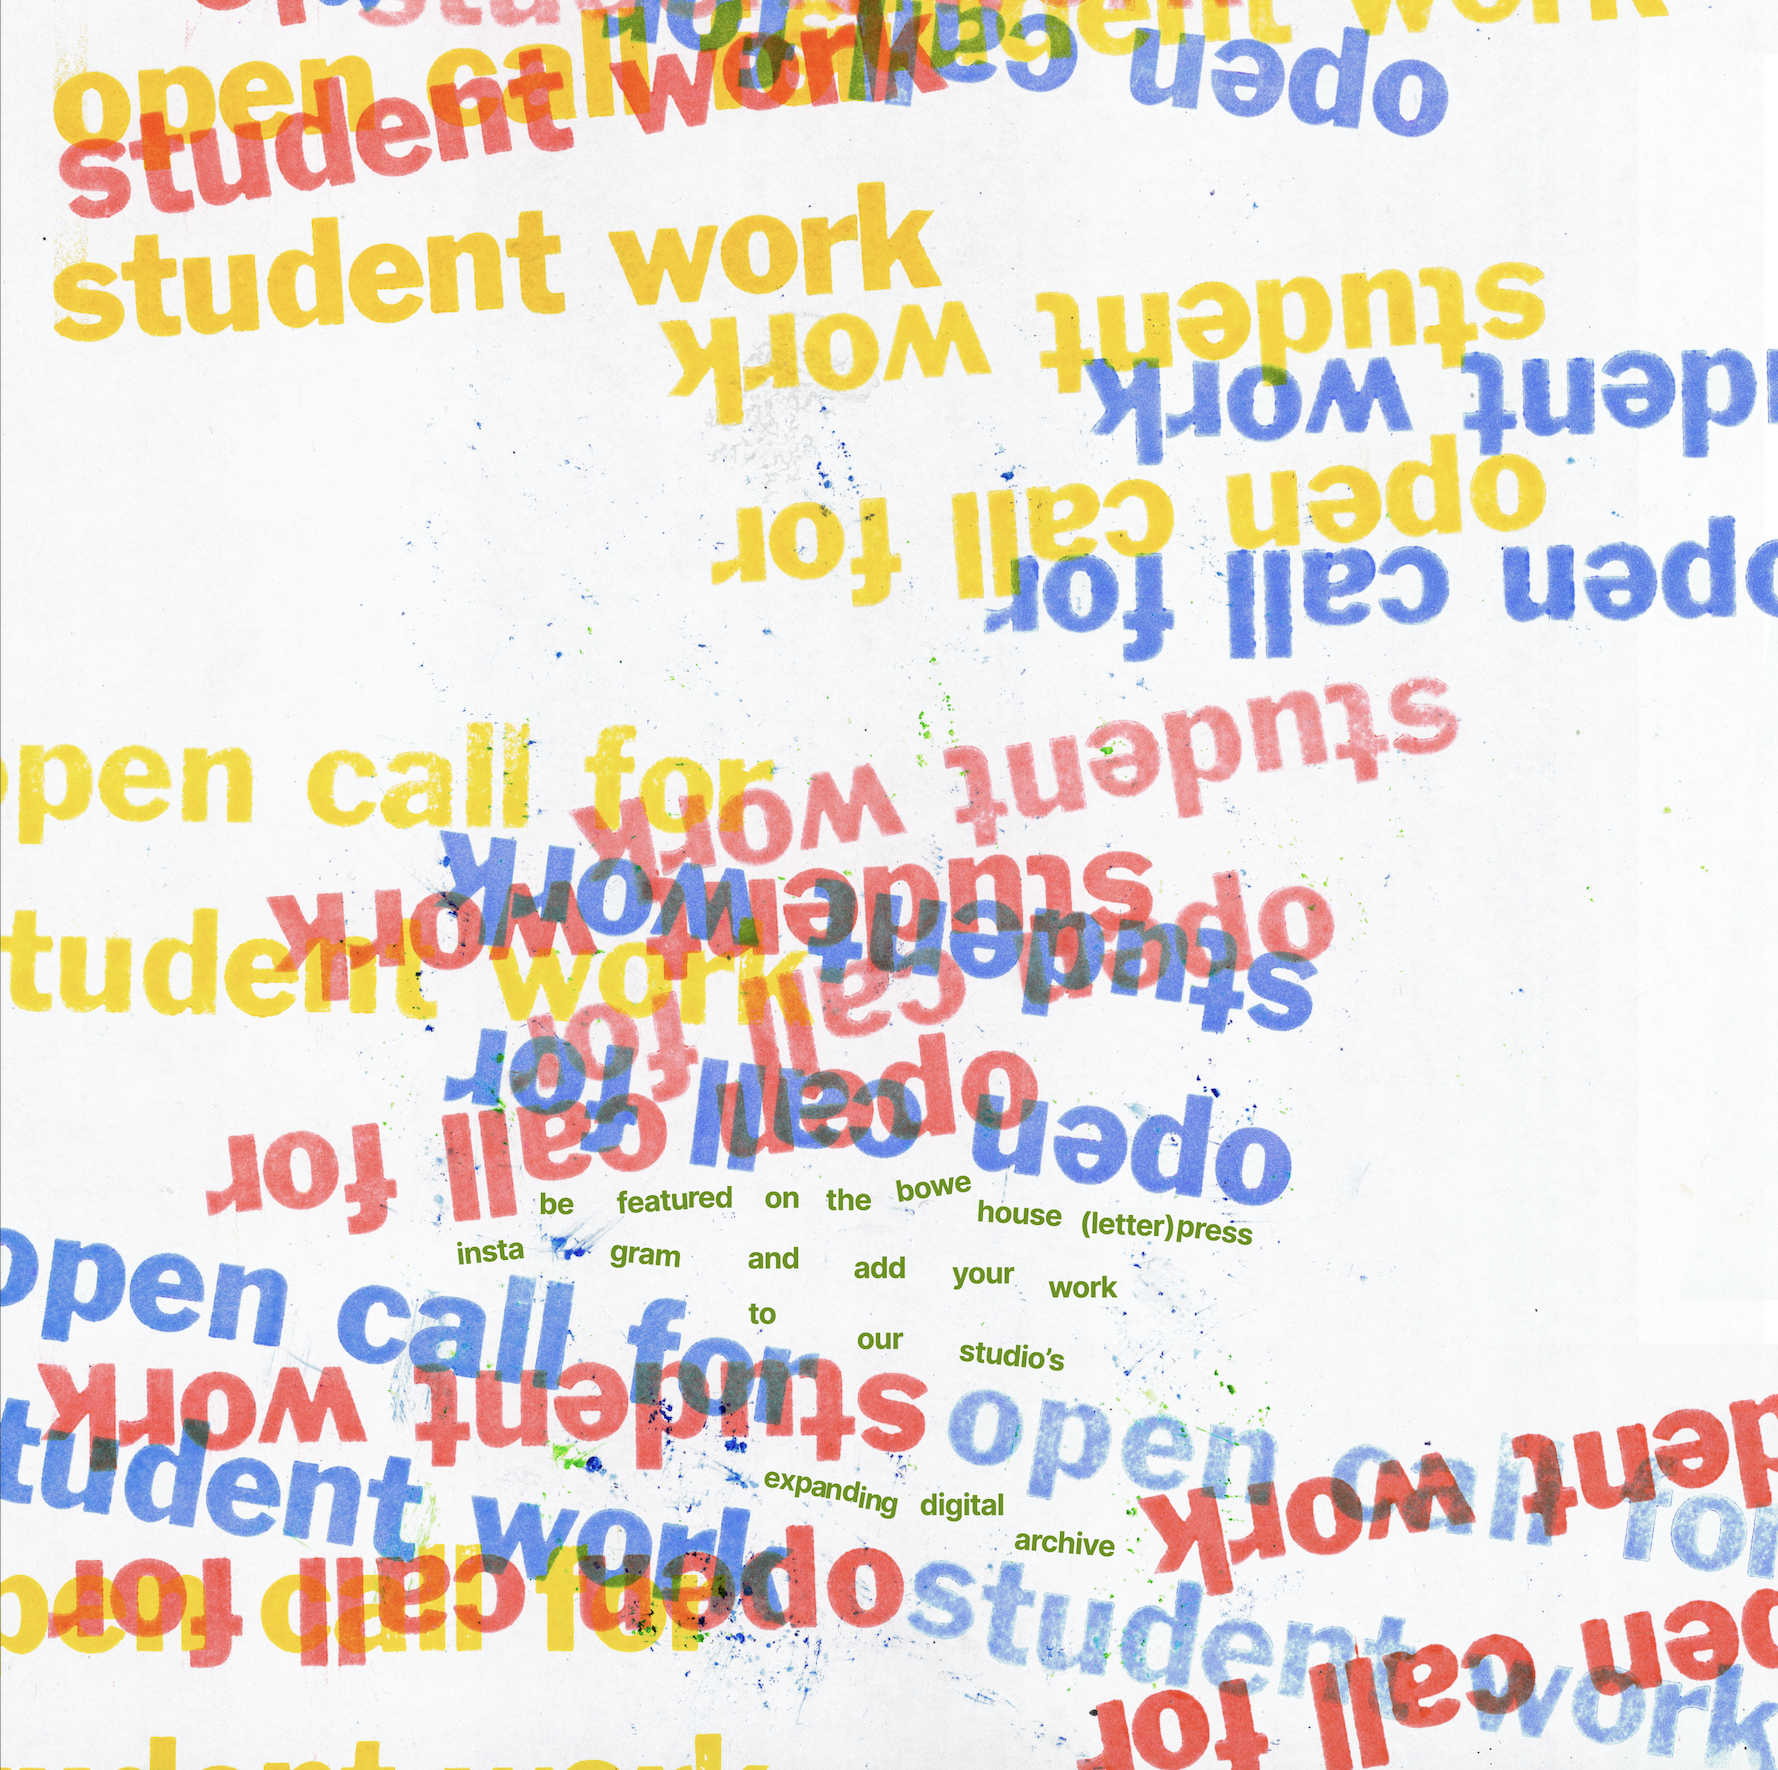 student work
open call for
open call for
student work
student work
student work
dent work
open call for
open call for
pen call for
student work
student work
student work
tudent work
open call for
open call for
open call for
be featured on the bowe house (letter)press
insta gram and add your work
to our studio's
open call for
student work
open call for
dent work
tudent work
expanding digital
archive
open call for
pen call for
student work
pen call for
udent work